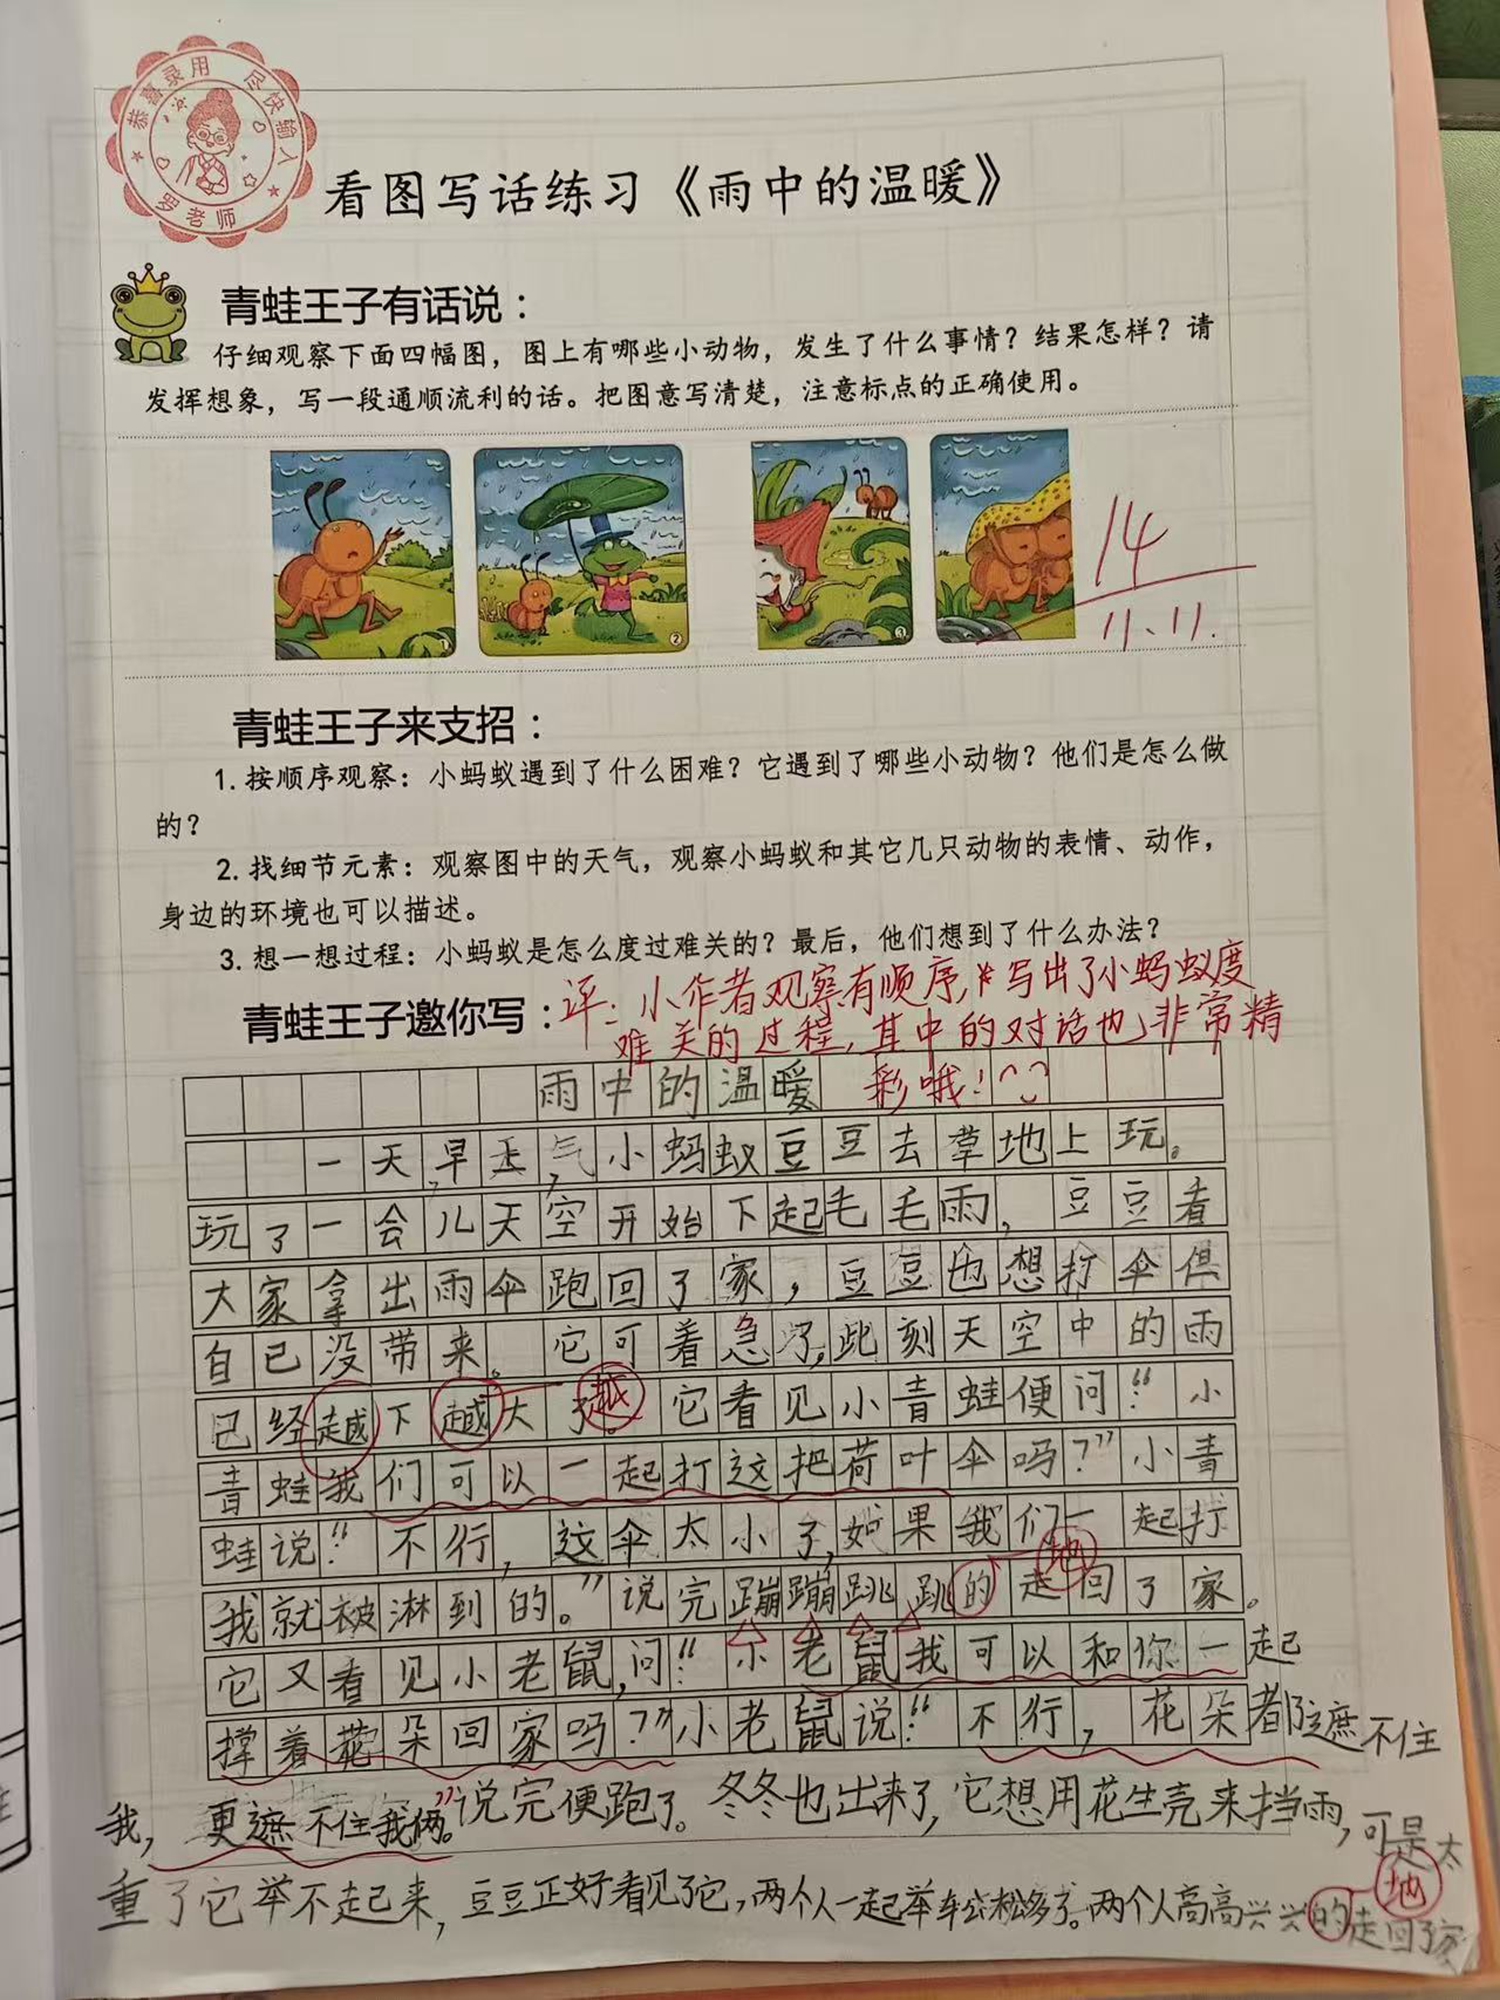 恭喜录用 尽快输入
罗老师
看图写话练习《雨中的温暖》
青蛙王子有话说：
仔细观察下面四幅图，图上有哪些小动物，发生了什么事情？结果怎样？请
发挥想象，写一段通顺流利的话。把图意写清楚，注意标点的正确使用。
1
2
3
14
11.11.
青蛙王子来支招：
1.按顺序观察：小蚂蚁遇到了什么困难？它遇到了哪些小动物？他们是怎么做
的？
2.找细节元素：观察图中的天气，观察小蚂蚁和其它几只动物的表情、动作，
身边的环境也可以描述。
3.想一想过程：小蚂蚁是怎么度过难关的？最后，他们想到了什么办法？
青蛙王子邀你写：
评：小作者观察有顺序，写出了小蚂蚁度
难关的过程，其中的对话也非常精
彩哦！
雨中的温暖
一天，早上，小蚂蚁豆豆去草地上玩。
玩了一会儿天空开始下起毛毛雨，豆豆看
大家拿出雨伞跑回了家，豆豆也想打伞但
自己没带来。它可着急了，此刻天空中的雨
已经越下越大了。它看见小青蛙便问：“小
越
青蛙我们可以一起打这把荷叶伞吗？”小青
蛙说：“不行，这伞太小了，如果我们一起打
地
我就被淋到的。”说完蹦蹦跳跳的走回了家。
它又看见小老鼠，问：“小老鼠我可以和你一起
撑着花朵回家吗？”小老鼠说：“不行，花朵都遮不住
我，更遮不住我俩。”说完便跑了。冬冬也出来了，它想用花生壳来挡雨，可是太
地
重了它举不起来，豆豆正好看见了它，两个人一起举轻松多了。两个人高高兴兴的走回了家